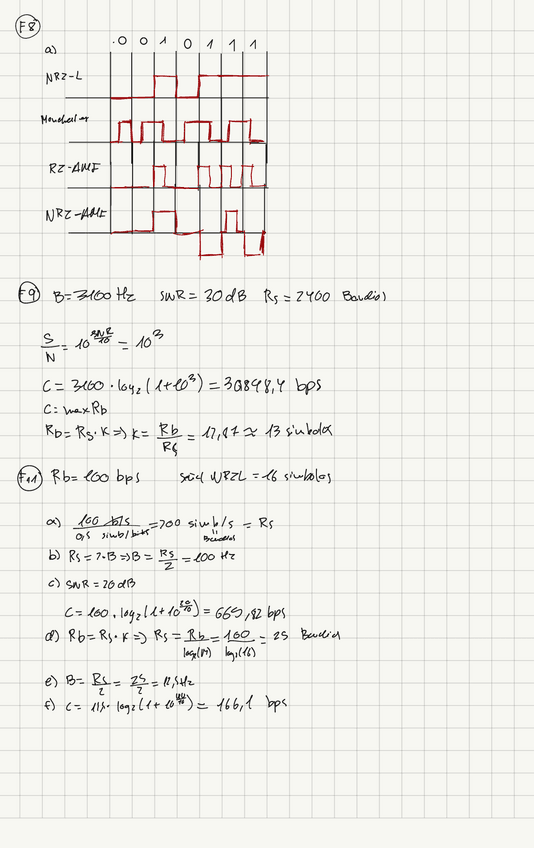 F8
a) 0 0 1 0 1 1 1
NRZ-L
Manchester
RZ-AMI
NRZ-AMI
F9 B=3100 Hz SNR = 30 dB Rs = 2400 Baudios
S/N = 10^(SNR/10) = 10^3
C = 3100 · log2(1+10^3) = 30898,4 bps
C = max Rb
Rb = Rs · K => K = Rb/Rs = 12,87 ≈ 13 simbolos
F11 Rb = 100 bps NRZL = 16 simbolos
a) 100 b/s / 0,5 simb/bits = 200 simb/s = Rs
Baudios
b) Rs = 2·B => B = Rs/2 = 100 Hz
c) SNR = 20 dB
C = 100 · log2(1+10^(20/10)) = 665,82 bps
d) Rb = Rs · K => Rs = Rb/log2(M) = 100/log2(16) = 25 Baudios
e) B = Rs/2 = 25/2 = 12,5 Hz
f) C = · log2(1+10^(20/10)) = 166,1 bps